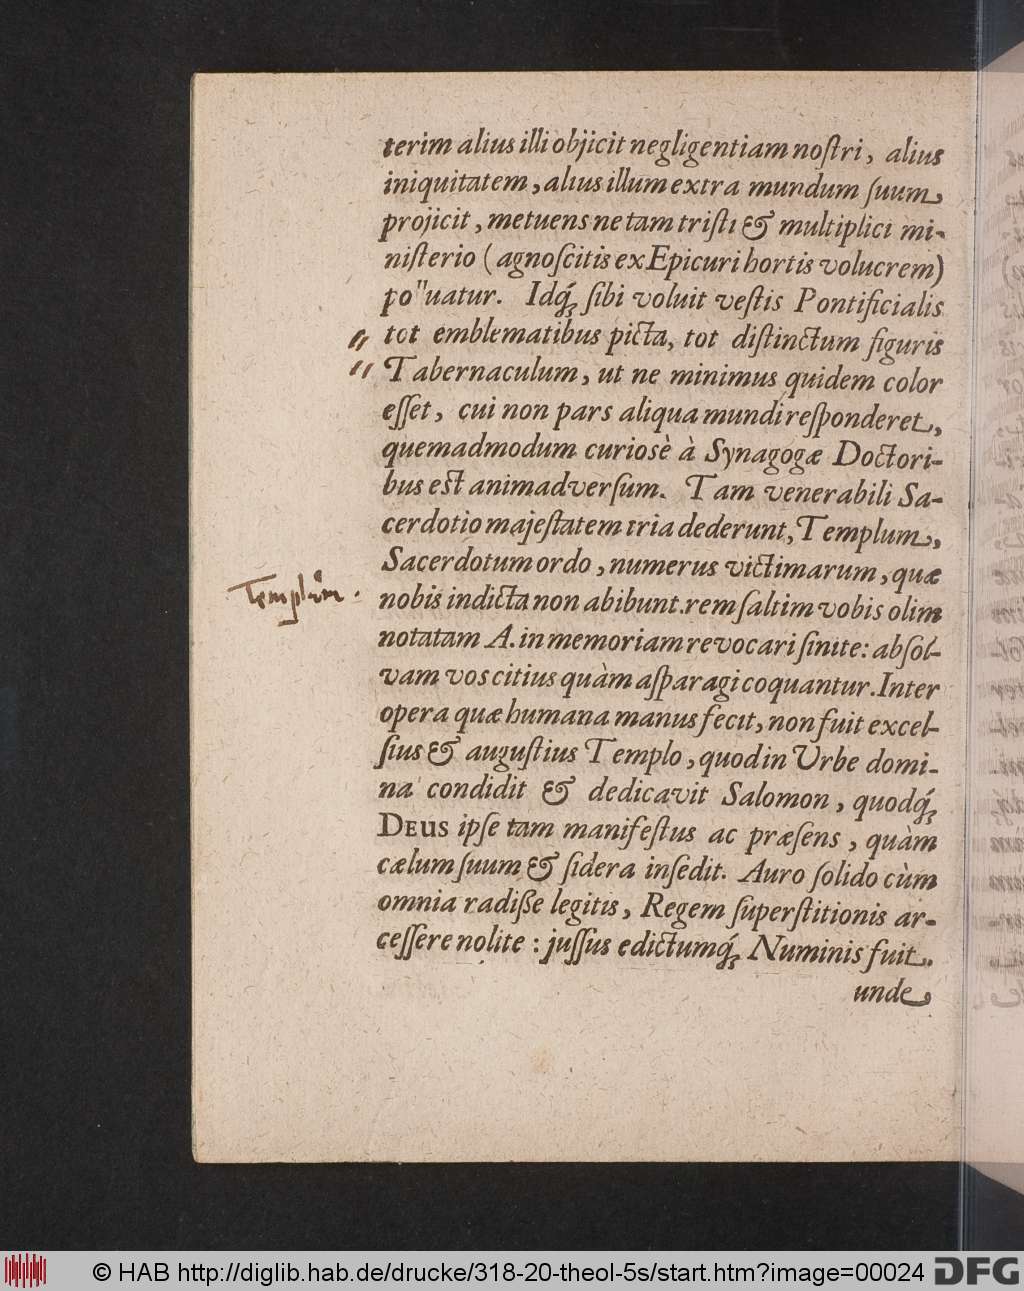 terim alius illi objicit negligentiam noſtri, alius
iniquitatem, alius illum extra mundum ſuum
projicit, metuens ne tam triſti & multiplici mi-
niſterio (agnoſcitis ex Epicuri hortis volucrem)
po"uatur. Idq́ꝫ ſibi voluit veſtis Pontificialis
tot emblematibus picta, tot diſtinctum figuris
Tabernaculum, ut ne minimus quidem color
eſſet, cui non pars aliqua mundi reſponderet,
quemadmodum curiosè à Synagogæ Doctori-
bus est animadverſum. Tam venerabili Sa-
cerdotio majeſtatem tria dederunt, Templum,
Sacerdotum ordo, numerus victimarum, quæ
Templum.
nobis indicta non abibunt. rem ſaltim vobis olim
notatam A. in memoriam revocari ſinite: abſol-
vam vos citius quàm aſparagi coquantur. Inter
opera quæ humana manus fecit, non fuit excel-
ſius & auguſtius Templo, quod in Urbe domi-
na condidit & dedicavit Salomon, quodq́ꝫ
DEUS ipſe tam manifeſtus ac præſens, quàm
cælum ſuum & ſidera inſedit. Auro ſolido cùm
omnia radiße legitis, Regem ſuperſtitionis ar-
ceſſere nolite: juſſus edictumq́ꝫ Numinis fuit.
unde
© HAB http://diglib.hab.de/drucke/318-20-theol-5s/start.htm?image=00024
DFG